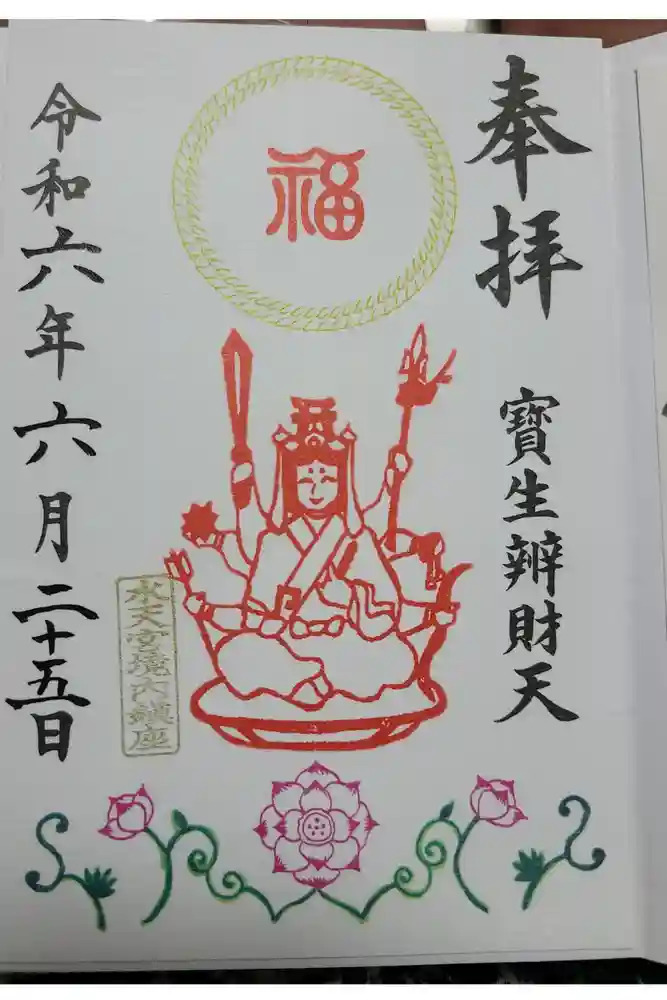 奉拝
福
寶生辨財天
水天宮境内鎮座
令和六年六月二十五日